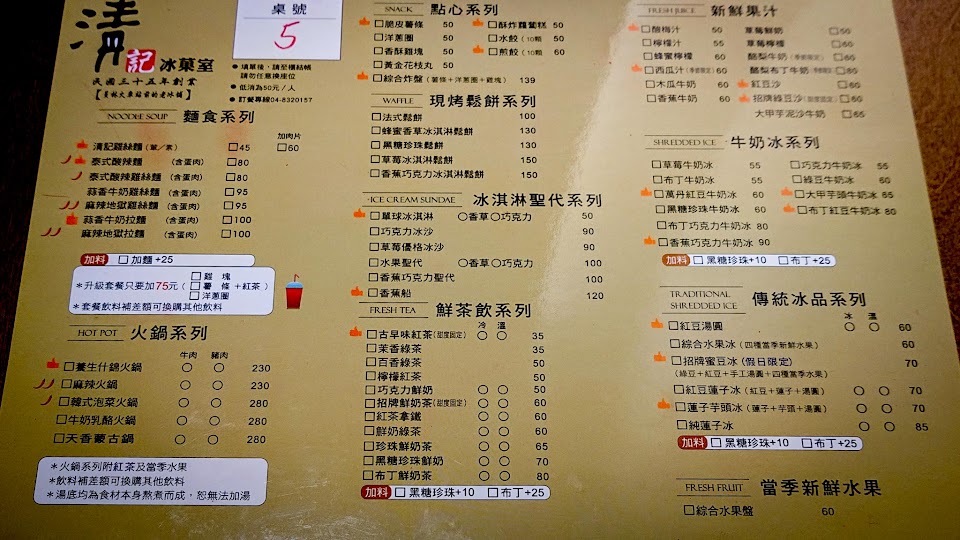 清記冰菓室
民國三十五年創業
【員林火車站前的老冰舖】
桌號
5
●填單後，請至櫃結帳
請勿任意換座位
●低消為50元／人
●訂餐專線04-8320157
NOODLE SOUP 麵食系列
加肉片
清記雞絲麵(葷／素) 45 60
泰式酸辣麵 (含蛋肉) 80
泰式酸辣雞絲麵 (含蛋肉) 80
蒜香牛奶雞絲麵 (含蛋肉) 95
麻辣地獄雞絲麵 (含蛋肉) 95
蒜香牛奶拉麵 (含蛋肉) 100
麻辣地獄拉麵 (含蛋肉) 100
加料 加麵+25
＊升級套餐只要加75元（雞塊 薯條 洋蔥圈＋紅茶）
＊套餐飲料補差額可換購其他飲料
HOT POT 火鍋系列
牛肉 豬肉
養生什錦火鍋 230
麻辣火鍋 230
韓式泡菜火鍋 280
牛奶乳酪火鍋 280
天香蒙古鍋 280
＊火鍋系列附紅茶及當季水果
＊飲料補差額可換購其他飲料
＊湯底均為食材本身熬煮而成，恕無法加湯
SNACK 點心系列
脆皮薯條 50 酥炸蘿蔔糕 50
洋蔥圈 50 水餃(10顆) 50
香酥雞塊 50 煎餃(10顆) 60
黃金花枝丸 50
綜合炸盤(薯條＋洋蔥圈＋雞塊) 139
WAFFLE 現烤鬆餅系列
法式鬆餅 100
蜂蜜香草冰淇淋鬆餅 130
黑糖珍珠鬆餅 130
草莓冰淇淋鬆餅 150
香蕉巧克力冰淇淋鬆餅 150
ICE CREAM SUNDAE 冰淇淋聖代系列
單球冰淇淋 香草 巧克力 50
巧克力冰沙 90
草莓優格冰沙 90
水果聖代 香草 巧克力 100
香蕉巧克力聖代 100
香蕉船 120
FRESH TEA 鮮茶飲系列
冷 溫
古早味紅茶(甜度固定) 35
茉香綠茶 35
百香綠茶 50
檸檬紅茶 50
巧克力鮮奶 50
招牌鮮奶茶(甜度固定) 60
紅茶拿鐵 60
鮮奶綠茶 60
珍珠鮮奶茶 65
黑糖珍珠鮮奶 70
布丁鮮奶茶 80
加料 黑糖珍珠+10 布丁+25
FRESH JUICE 新鮮果汁
酸梅汁 50 草莓鮮奶 50
檸檬汁 55 草莓檸檬 60
蜂蜜檸檬 60 酪梨牛奶
西瓜汁 酪梨布丁牛奶
木瓜牛奶 60 紅豆沙
香蕉牛奶 60 招牌綠豆沙
大甲芋泥沙牛奶 65
SHREDDED ICE 牛奶冰系列
草莓牛奶冰 55 巧克力牛奶冰 55
布丁牛奶冰 55 綠豆牛奶冰 60
萬丹紅豆牛奶冰 60 大甲芋頭牛奶冰 65
黑糖珍珠牛奶冰 60 布丁紅豆牛奶冰 80
布丁巧克力牛奶冰 80
香蕉巧克力牛奶冰 90
加料 黑糖珍珠+10 布丁+25
TRADITIONAL SHREDDED ICE 傳統冰品系列
冰 溫
紅豆湯圓 60
綜合水果冰(四種當季新鮮水果) 60
招牌蜜豆冰(假日限定) 70
(綠豆＋紅豆＋手工湯圓＋四種當季水果)
紅豆蓮子冰(紅豆＋蓮子＋湯圓) 70
蓮子芋頭冰(蓮子＋芋頭＋湯圓) 70
純蓮子冰 85
加料 黑糖珍珠+10 布丁+25
FRESH FRUIT 當季新鮮水果
綜合水果盤 60